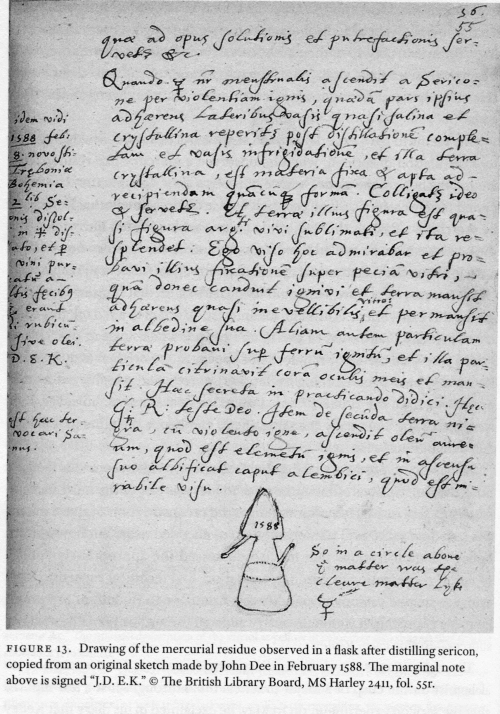 56.
55
quæ ad opus solutionis et putrefactionis ser-
vetꝭ &c.
Quando ☿ nr̄ menstrualis ascendit a Serico-
ne per violentiam ignis, quædā pars ipsius
adhærens lateribus vasis quasi salina et
crystallina reperitꝭ post distillationē comple-
tam et vasis infrigidationē, et illa terra
crystallina, est materia fixa & apta ad re-
cipiendam quācūqꝫ formā. Colligatꝭ ideo
& servetꝭ. Et terræ illius figura est qua-
si figura argti vivi sublimati, et ita re-
splendet. Ego viso hoc admirabar et pro-
bavi illius fixationē super peciā vitri,
quā donec canduit ignivi et terra mansit
adhærens quasi inevellibilis vitro, et permansit
in albedine sua. Aliam autem particulam
terræ probavi supꝭ ferrū ignitū, et illa par-
ticula citrinavit corā oculis meis et man-
sit. Hæc secreta in practicando didici. Hæc
G: R: teste Deo. Item de secūda terra ni-
gra, cū violento igne, ascendit oleū aure-
um, quod est elemētū ignis, et in ascensu
suo albificat caput alembici, quod est mi-
rabile visu.
idem vidi
1588 feb:
8. novo sti-
Treboniæ
Bohemia
2 lib Se-
onis dissol-
in dis-
ato, et ꝑ
vini pur-
catū a
ltis fecibꝫ
erant
rubicū-
sive olei.
D. E. K.
est hæc ter-
vocari
nus.
1588
So in a circle above
yͤ matter was the
cleare matter lyke
☿
FIGURE 13. Drawing of the mercurial residue observed in a flask after distilling sericon,
copied from an original sketch made by John Dee in February 1588. The marginal note
above is signed “J.D. E.K.” © The British Library Board, MS Harley 2411, fol. 55r.